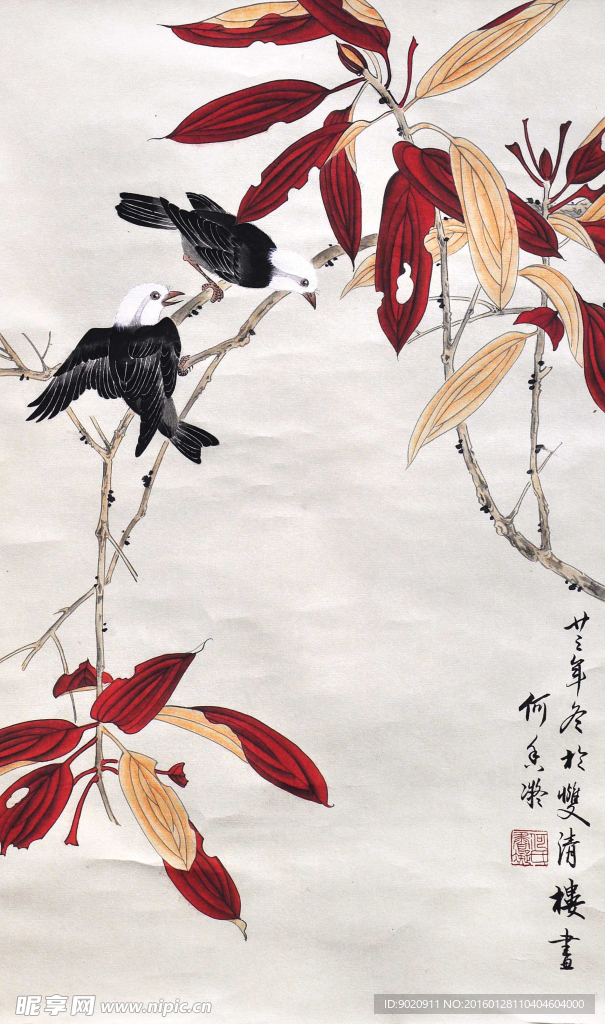 廿三年冬於雙清樓畫
何香凝
昵享网 www.nipic.cn
ID:9020911 NO:20160128110404604000